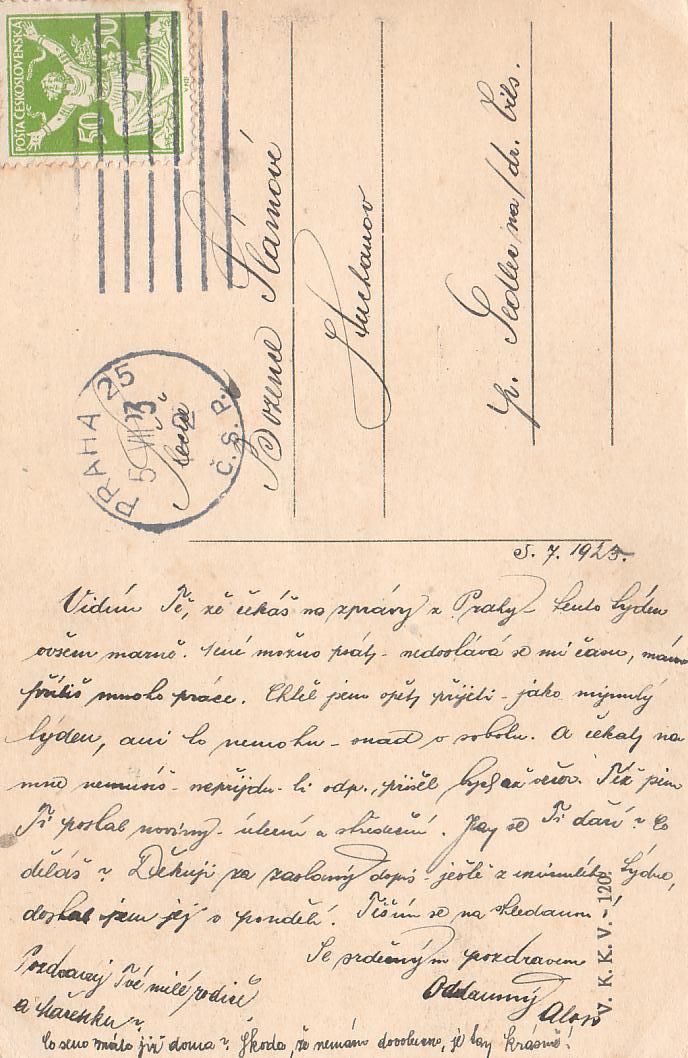 POŠTA ČESKOSLOVENSKÁ
50 50
PRAHA 25
5 VII 23
Č.S.P.
Slečna
Božence Slámové
Suchanov
p. Sedlec na/dr. Bíls.
5. 7. 1923.
Vidím Tě, že čekáš na zprávy z Prahy - tento týden
ovšem marně. Není možno psáti - nedostává se mi času, mám
příliš mnoho práce. Chtěl jsem opět přijeti - jako minulý
týden, ani to nemohu - snad v sobotu. A čekat na
mne nemusíš - nepřijdu-li odp., přišel bych až večer. Též jsem
Ti poslal noviny - úterní a středeční. Jak se Ti daří? Co
děláš? Děkuji za zaslaný dopis - ještě z minulého týdne,
dostal jsem jej v pondělí. Těším se na shledanou!
Se srdečným pozdravem
Oddaný
Alois
Pozdravuj Tvé milé rodiče
a Mařenku?
Co seno máte již doma? Škoda, že nemám dovolenou, je tak krásně!
V. K. K. V. - 120.